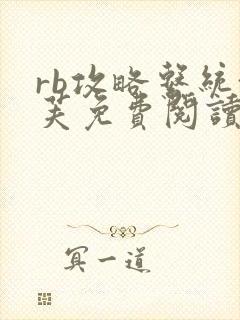 rb攻略繫統
芙免費閱讀
冥一道